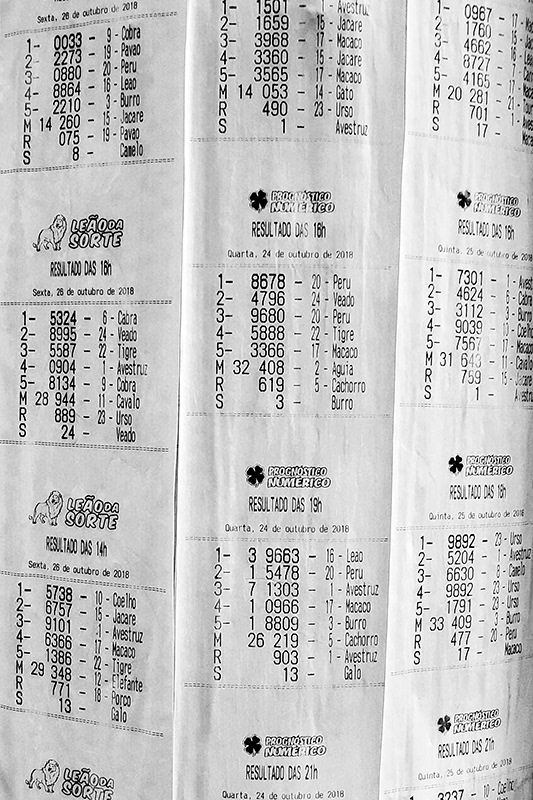 Sexta, 26 de outubro de 2018
1- 0033 - 9 - Cobra
2- 2273 - 19 - Pavao
3- 0880 - 20 - Peru
4- 8864 - 16 - Leao
5- 2210 - 3 - Burro
M 14 260 - 15 - Jacare
R 075 - 19 - Pavao
S 8 - Camelo
LEÃO DA
SORTE
RESULTADO DAS 16h
Sexta, 26 de outubro de 2018
1- 5324 - 6 - Cabra
2- 8995 - 24 - Veado
3- 5587 - 22 - Tigre
4- 0904 - 1 - Avestruz
5- 8134 - 9 - Cobra
M 28 944 - 11 - Cavalo
R 889 - 23 - Urso
S 24 - Veado
LEÃO DA
SORTE
RESULTADO DAS 14h
Sexta, 26 de outubro de 2018
1- 5738 - 10 - Coelho
2- 6757 - 15 - Jacare
3- 9101 - 1 - Avestruz
4- 6366 - 17 - Macaco
5- 1386 - 22 - Tigre
M 29 348 - 12 - Elefante
R 771 - 18 - Porco
S 13 - Galo
LEÃO DA
SORTE
1- 1501 - 1 - Avestruz
2- 1659 - 15 - Jacare
3- 3968 - 17 - Macaco
4- 3360 - 15 - Jacare
5- 3565 - 17 - Macaco
M 14 053 - 14 - Gato
R 490 - 23 - Urso
S 1 - Avestruz
PROGNÓSTICO
NUMÉRICO
RESULTADO DAS 16h
Quarta, 24 de outubro de 2018
1- 8678 - 20 - Peru
2- 4796 - 24 - Veado
3- 9680 - 20 - Peru
4- 5888 - 22 - Tigre
5- 3366 - 17 - Macaco
M 32 408 - 2 - Aguia
R 619 - 5 - Cachorro
S 3 - Burro
PROGNÓSTICO
NUMÉRICO
RESULTADO DAS 19h
Quarta, 24 de outubro de 2018
1- 3 9663 - 16 - Leao
2- 1 5478 - 20 - Peru
3- 7 1303 - 1 - Avestruz
4- 1 0966 - 17 - Macaco
5- 1 8809 - 3 - Burro
M 26 219 - 5 - Cachorro
R 903 - 1 - Avestruz
S 13 - Galo
PROGNÓSTICO
NUMÉRICO
RESULTADO DAS 21h
Quarta, 24 de outubro de 2018
1- 0967 - 17 -
2- 1760 - 15 -
3- 4662 - 16 -
4- 8727 - 7 -
5- 4165 - 17 -
M 20 281 - 21 -
R 701 - 1 -
S 17 -
PROGNÓSTICO
NUMÉRICO
RESULTADO DAS 16h
Quinta, 25 de outubro de 2018
1- 7301 - 1 -
2- 4624 - 6 - Cabra
3- 3112 - 3 - Burro
4- 9039 - 10 - Coelho
5- 7567 - 17 - Macaco
M 31 643 - 11 - Cavalo
R 759 - 15 - Jacare
S 1 -
PROGNÓSTICO
NUMÉRICO
RESULTADO DAS 18h
Quinta, 25 de outubro de 2018
1- 9892 - 23 - Urso
2- 5204 - 1 - Avestruz
3- 6630 - 8 - Camelo
4- 9892 - 23 - Urso
5- 1791 - 23 - Urso
M 33 409 - 3 - Burro
R 477 - 20 - Peru
S 17 - Macaco
PROGNÓSTICO
NUMÉRICO
RESULTADO DAS 21h
Quinta, 25 de outubro de 2018
3237 - 10 - Coelho